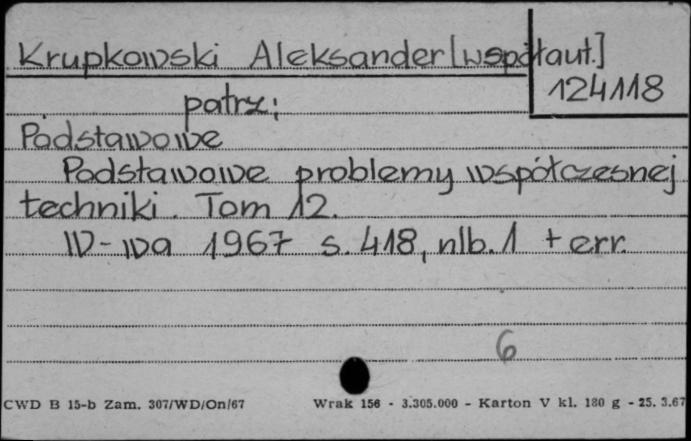 Krupkowski Aleksander [współaut.]
124118
patrz:
Podstawowe
Podstawowe problemy współczesnej
techniki. Tom 12.
W-wa 1967 s. 418, nlb. 1 + err.
6
CWD B 15-b Zam. 307/WD/On/67 Wrak 156 - 3.305.000 - Karton V kl. 180 g - 25. 3.67